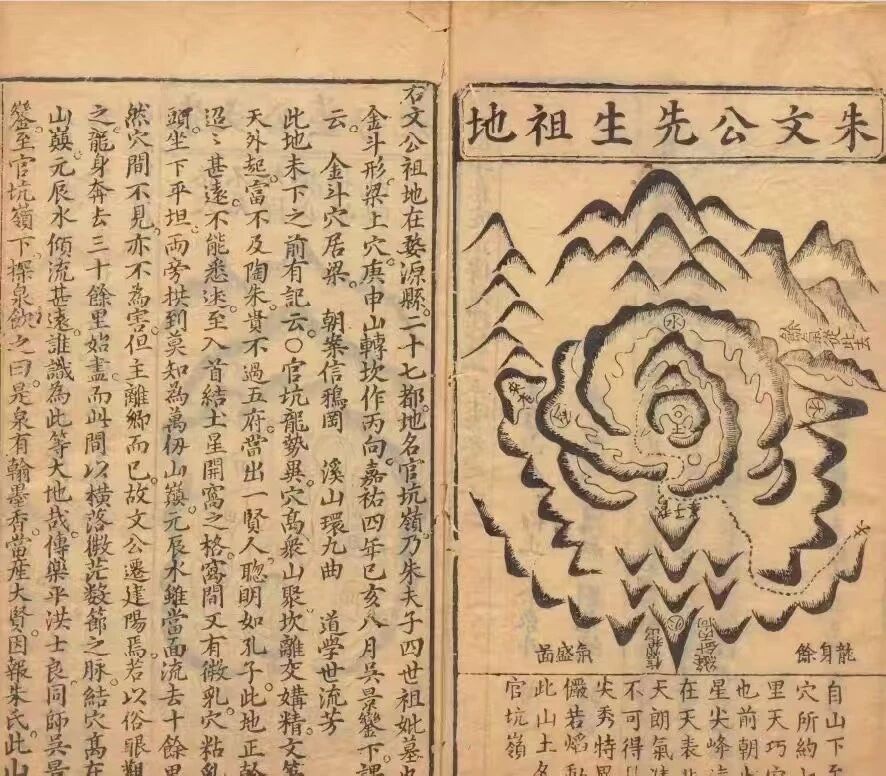 朱文公先生祖地
餘氣從此去
水
金
土
木
火
孩子
龍身餘
氣盛苗
自山下
穴所約
里天巧
也前朝
星尖峰
在天表
天朗氣
不可得
尖秀特
儼若熖
此山土名
官坑嶺
右文公祖地在婺源縣二十七都地名官坑嶺乃朱夫子四世祖妣墓也
金斗形梁上穴庚申山轉坎作丙向嘉祐四年己亥八月吳景鑾下課
云。金斗穴居梁 朝案信鴉岡 溪山環九曲 道學世流芳
此地未下之前有記云○官坑龍勢異。穴髙衆山聚。坎離交媾精。文筆
天外起。富不及陶朱。貴不過五府。當出一賢人。聰明如孔子。此地正幹
迢〻甚遠。不能悉述。至入首結土星開窩之格。窩間又有微乳。穴粘乳
頭。坐下平坦。兩旁拱到。莫知為萬仞山巔。元辰水雖當面流去十餘里
然穴間不見。亦不為害。但主離鄉而已。故文公遷建陽焉。若以俗眼觀
之。龍身奔去三十餘里始盡。而此間以橫落微茫数節之脉。結穴髙在
山巔。元辰水傾流甚遠。誰識為此等大地哉。傳樂平洪士良同師吳景
鑾至官坑嶺下。探泉飲之曰。是泉有翰墨香。當産大賢。因報朱氏。此山